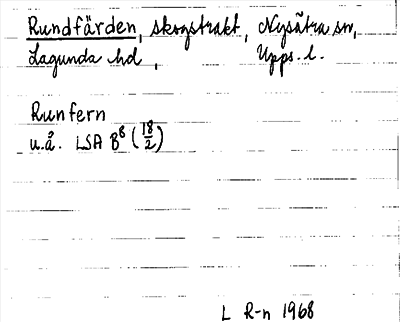 Rundfärden, skogstrakt, Nysätra sn,
Lagunda hd, Upps. l.
Runfern
u.å. LSA B⁸ (18/2)
L R-n 1968